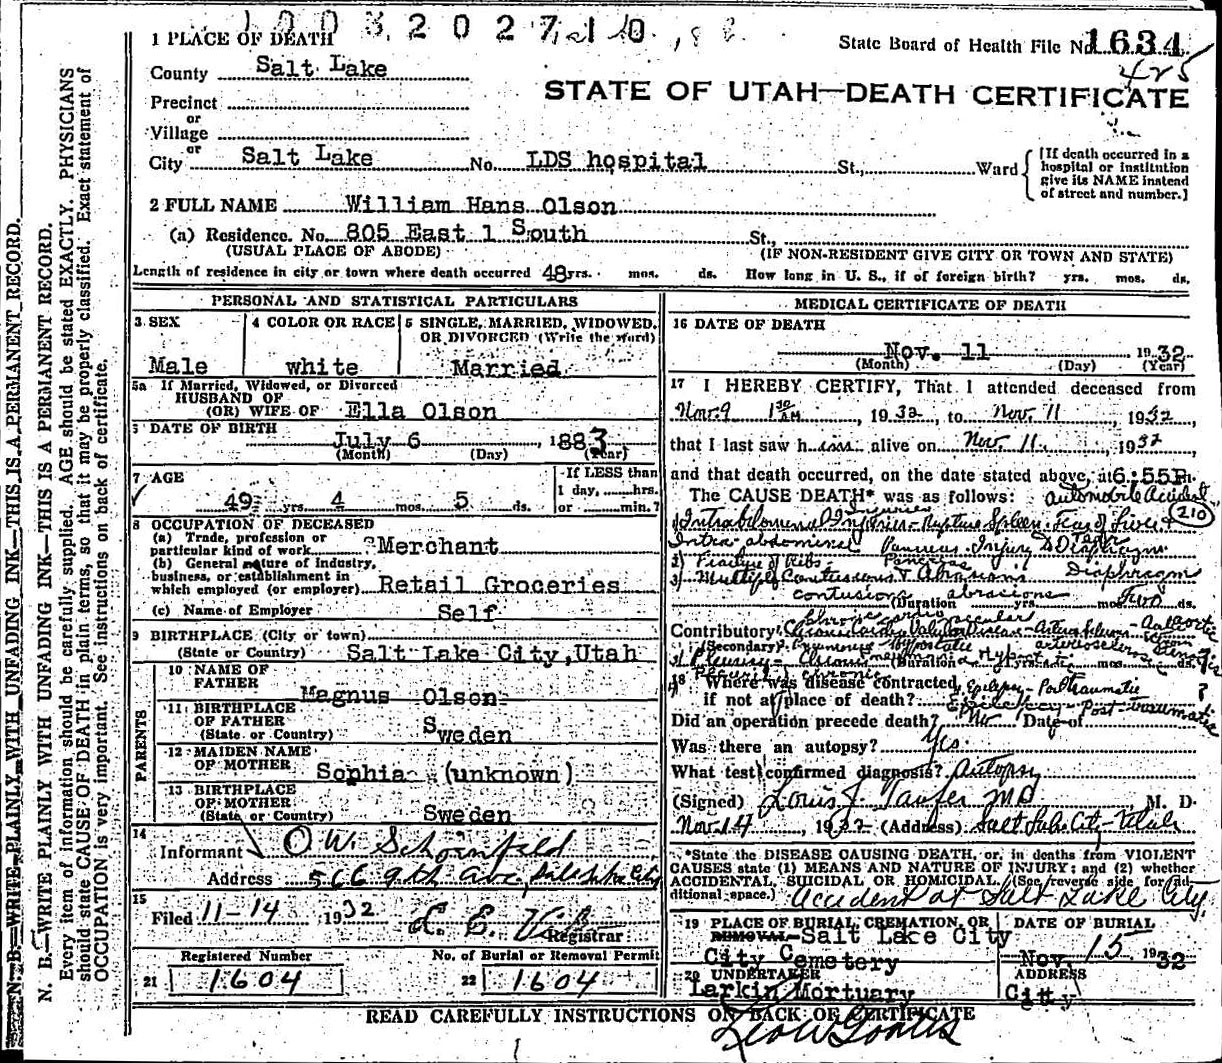 1003202710
1 PLACE OF DEATH
State Board of Health File No. 1634
425
County Salt Lake
STATE OF UTAH—DEATH CERTIFICATE
Precinct
or
Village
or
City Salt Lake No. LDS hospital St., Ward
[If death occurred in a hospital or institution give its NAME instead of street and number.]
2 FULL NAME William Hans Olson
(a) Residence. No. 805 East 1 South St.,
(USUAL PLACE OF ABODE) (IF NON-RESIDENT GIVE CITY OR TOWN AND STATE)
Length of residence in city or town where death occurred 48 yrs. mos. ds. How long in U. S., if of foreign birth? yrs. mos. ds.
PERSONAL AND STATISTICAL PARTICULARS
3 SEX 4 COLOR OR RACE 5 SINGLE, MARRIED, WIDOWED,
OR DIVORCED (Write the word)
Male white Married
5a If Married, Widowed, or Divorced
HUSBAND OF
(OR) WIFE OF Ella Olson
6 DATE OF BIRTH
July 6, 1883
(Month) (Day) (Year)
7 AGE If LESS than
1 day, hrs.
49 yrs. 4 mos. 5 ds. or min.?
8 OCCUPATION OF DECEASED
(a) Trade, profession or
particular kind of work Merchant
(b) General nature of industry,
business, or establishment in
which employed (or employer) Retail Groceries
(c) Name of Employer Self
9 BIRTHPLACE (City or town)
(State or Country) Salt Lake City, Utah
PARENTS
10 NAME OF
FATHER Magnus Olson
11 BIRTHPLACE
OF FATHER
(State or Country) Sweden
12 MAIDEN NAME
OF MOTHER Sophia (unknown)
13 BIRTHPLACE
OF MOTHER
(State or Country) Sweden
14
Informant O. W. Schoinfeld
Address 566 9th Ave, Salt Lake City
15
Filed 11-14 1932
Registrar
Registered Number No. of Burial or Removal Permit
21 1604 22 1604
MEDICAL CERTIFICATE OF DEATH
16 DATE OF DEATH
Nov. 11 1932
(Month) (Day) (Year)
17 I HEREBY CERTIFY, That I attended deceased from
Nov. 9 1 30 AM, 1932, to Nov. 11, 1932
that I last saw him alive on Nov. 11, 1932
and that death occurred, on the date stated above, at 6:55P m.
The CAUSE DEATH* was as follows: Automobile Accident
210
Injuries
1) Intrabdominal Injuries - Rupture Spleen - Tear of Liver +
Intra abdominal Pancreas - Injury to Diaphragm
2) Fracture of Ribs Pancreas Diaphragm
3) Multiple Contusions + Abrasions
contusions abrasions
(Duration yrs. mos. Two ds.
Contributory
(Secondary)
(Duration yrs. mos. ds.
18 Where was disease contracted,
if not at place of death? Epilepsy - Post traumatic ?
Epilepsy - Post-traumatic
Did an operation precede death? No Date of
Was there an autopsy? Yes.
What test confirmed diagnosis? Autopsy
(Signed) Louis J. Taufer MD, M. D.
Nov. 14, 1932 (Address) Salt Lake City Utah
*State the DISEASE CAUSING DEATH, or, in deaths from VIOLENT
CAUSES state (1) MEANS AND NATURE OF INJURY; and (2) whether
ACCIDENTAL, SUICIDAL OR HOMICIDAL. (See reverse side for additional space.)
Accident at Salt Lake City.
19 PLACE OF BURIAL, CREMATION, OR DATE OF BURIAL
REMOVAL Salt Lake City
City Cemetery Nov. 15 1932
20 UNDERTAKER ADDRESS
Larkin Mortuary City
READ CAREFULLY INSTRUCTIONS ON BACK OF CERTIFICATE
N. B.—WRITE PLAINLY WITH UNFADING INK—THIS IS A PERMANENT RECORD.
N. B.—WRITE PLAINLY WITH UNFADING INK—THIS IS A PERMANENT RECORD.
Every item of information should be carefully supplied. AGE should be stated EXACTLY. PHYSICIANS
should state CAUSE OF DEATH in plain terms, so that it may be properly classified. Exact statement of
OCCUPATION is very important. See instructions on back of certificate.